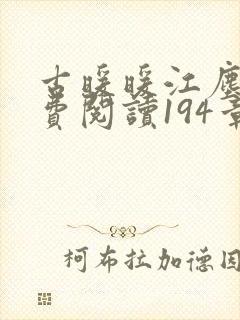 古暖暖江塵
費閱讀194章
柯布拉加德因